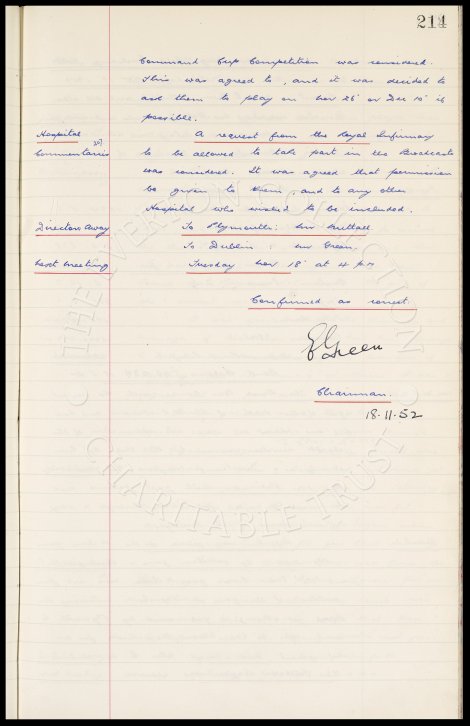 214
Command Cup Competition was considered.
This was agreed to, and it was decided to
ask them to play on Nov 26 or Dec 10 if
possible.
Hospital A request from the Royal Infirmary
Commentaries to be allowed to take part in the Broadcasts
was considered. It was agreed that permission
be given to them, and to any other
Hospital who wished to be included.
Directors Away To Plymouth: Mr Nuttall
To Dublin: Mr Green.
Next Meeting Tuesday Nov 18 at 4 pm
Confirmed as correct.
E Green
Chairman.
18.11.52
THE EVERTON COLLECTION
CHARITABLE TRUST